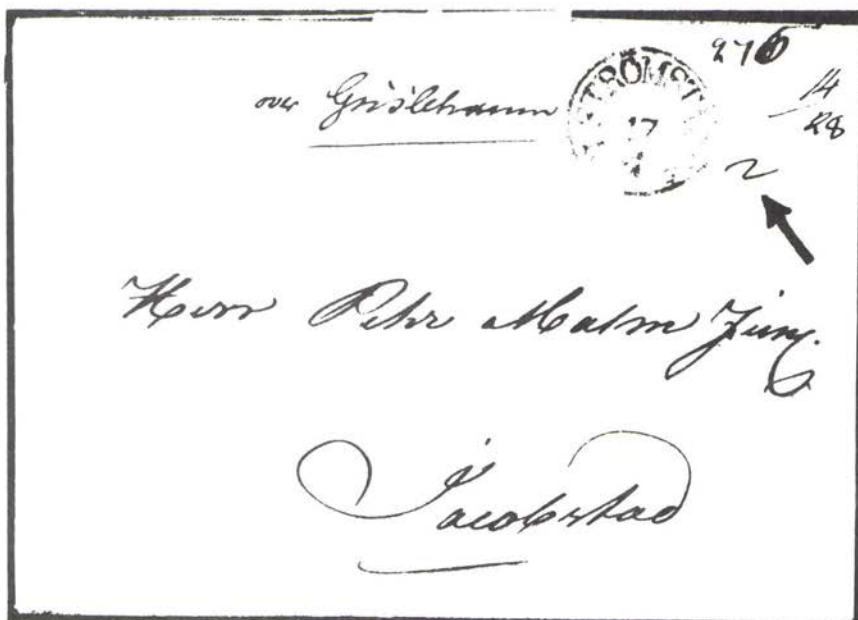 276
over Grislehamn
STRÖMST
17
14
28
2
Herr Pehr Malm Junr.
Jacobstad